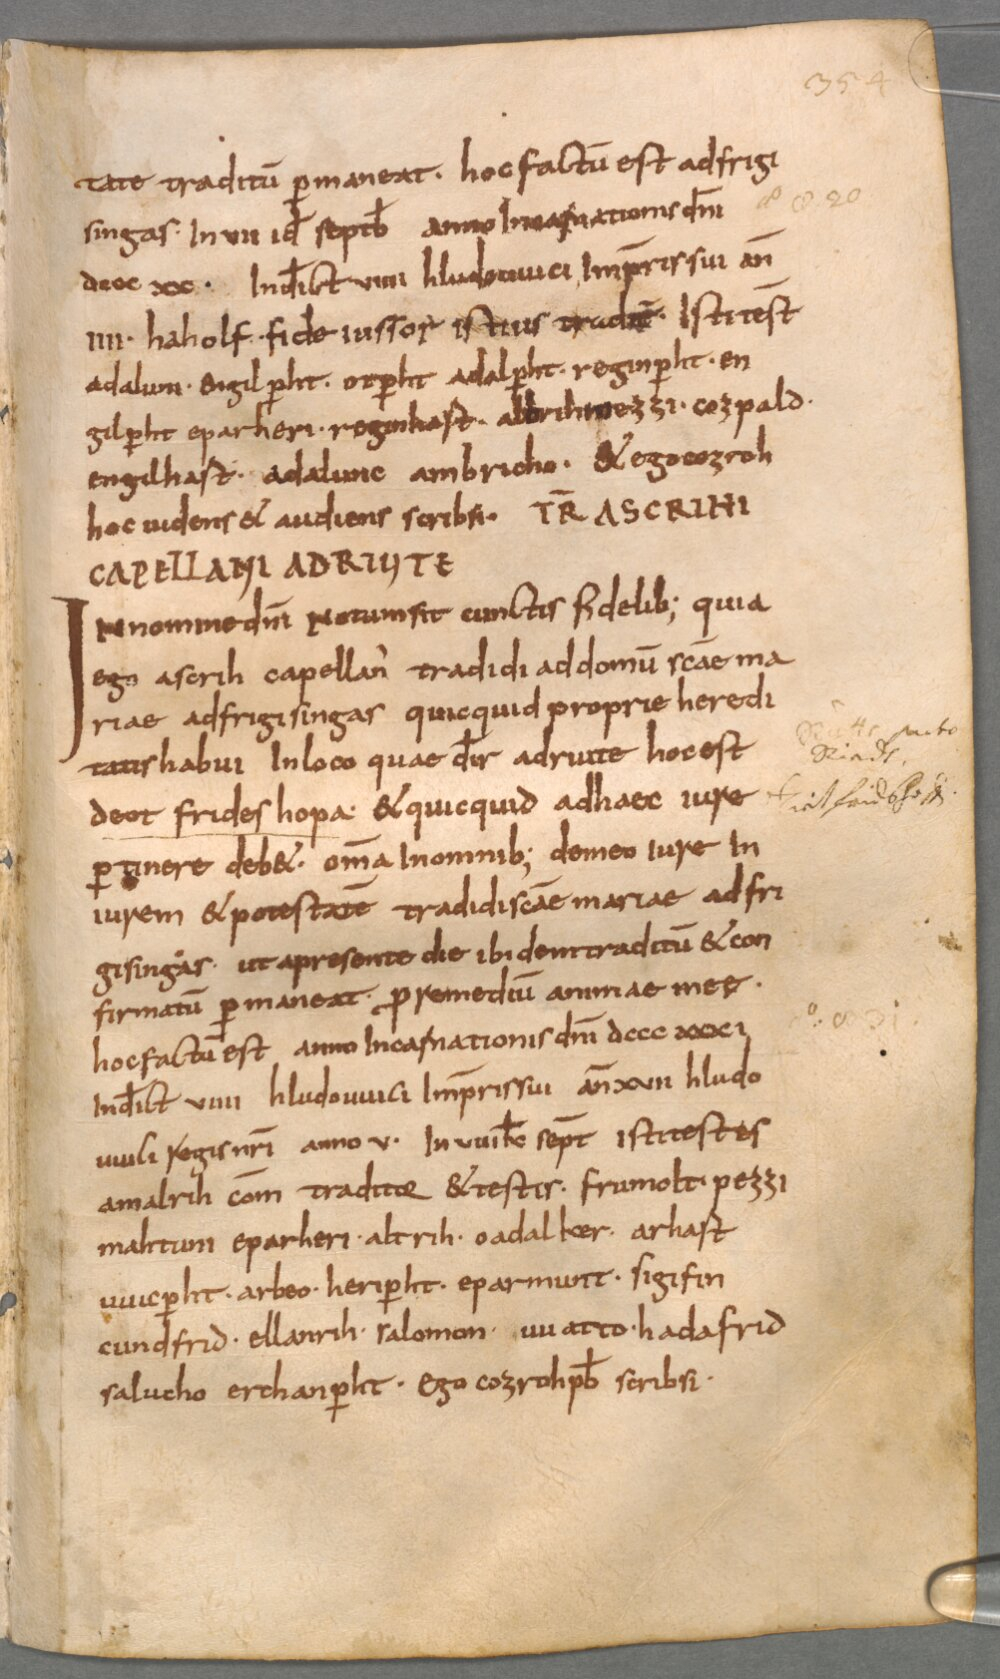 354
tate traditū p̄maneat. hoc factū est adfrigi
singas. In vii id sept̄b anno Incarnationis dn̄i
dccc xx. Ind̄ict viiii hludouuici Imp̄ris sui an̄
iiii. haholf. fideiussor istius tradit̄. Isti test̄
adalum. engilp̄ht. otp̄ht adalp̄ht. reginp̄ht. en
gilp̄ht eparheri. reginhast. albrih pezzi. cozpald.
engilhast. adalunc ambricho. & ego cozroh
hoc uidens & audiens scribsi. TR̄ ASCRIHI
CAPELLANI AD RIUTE
IN nomine dn̄i Notum sit cunctis fidelib; quia
ego ascrih capellan' tradidi ad domū scāe ma
riae ad frigisingas quicquid proprie heredi
tatis habui In loco quae d̄r ad riute hoc est
deot frideshopa. & quicquid ad haec iure
p̄tinere deb&. om̄a In omnib; de meo iure In
iurem & potestatē tradidi scāe mariae ad fri
gisingas. ut a presente die ibidem traditū & con
firmatū p̄maneat. p̄ remediū animae meę.
hoc factū est anno Incarnationis dn̄i dccc xxxi
Ind̄ict viiii hludouuici Imp̄ris sui an̄ xvii hludo
uuici regis nr̄i anno v. In vii k̄ sept̄ isti testes
amalrih com̄ traditor & testis. frumolt. pezzi
mahtuni eparheri. altrih. oadalker. arhast
uuicp̄ht. arbeo. herip̄ht. eparmunt. sigifrin
cundfrid. ellanrih. salomon. uuatto. hadafrid
salucho erchanp̄ht. Ego cozroh pb̄ scribsi.